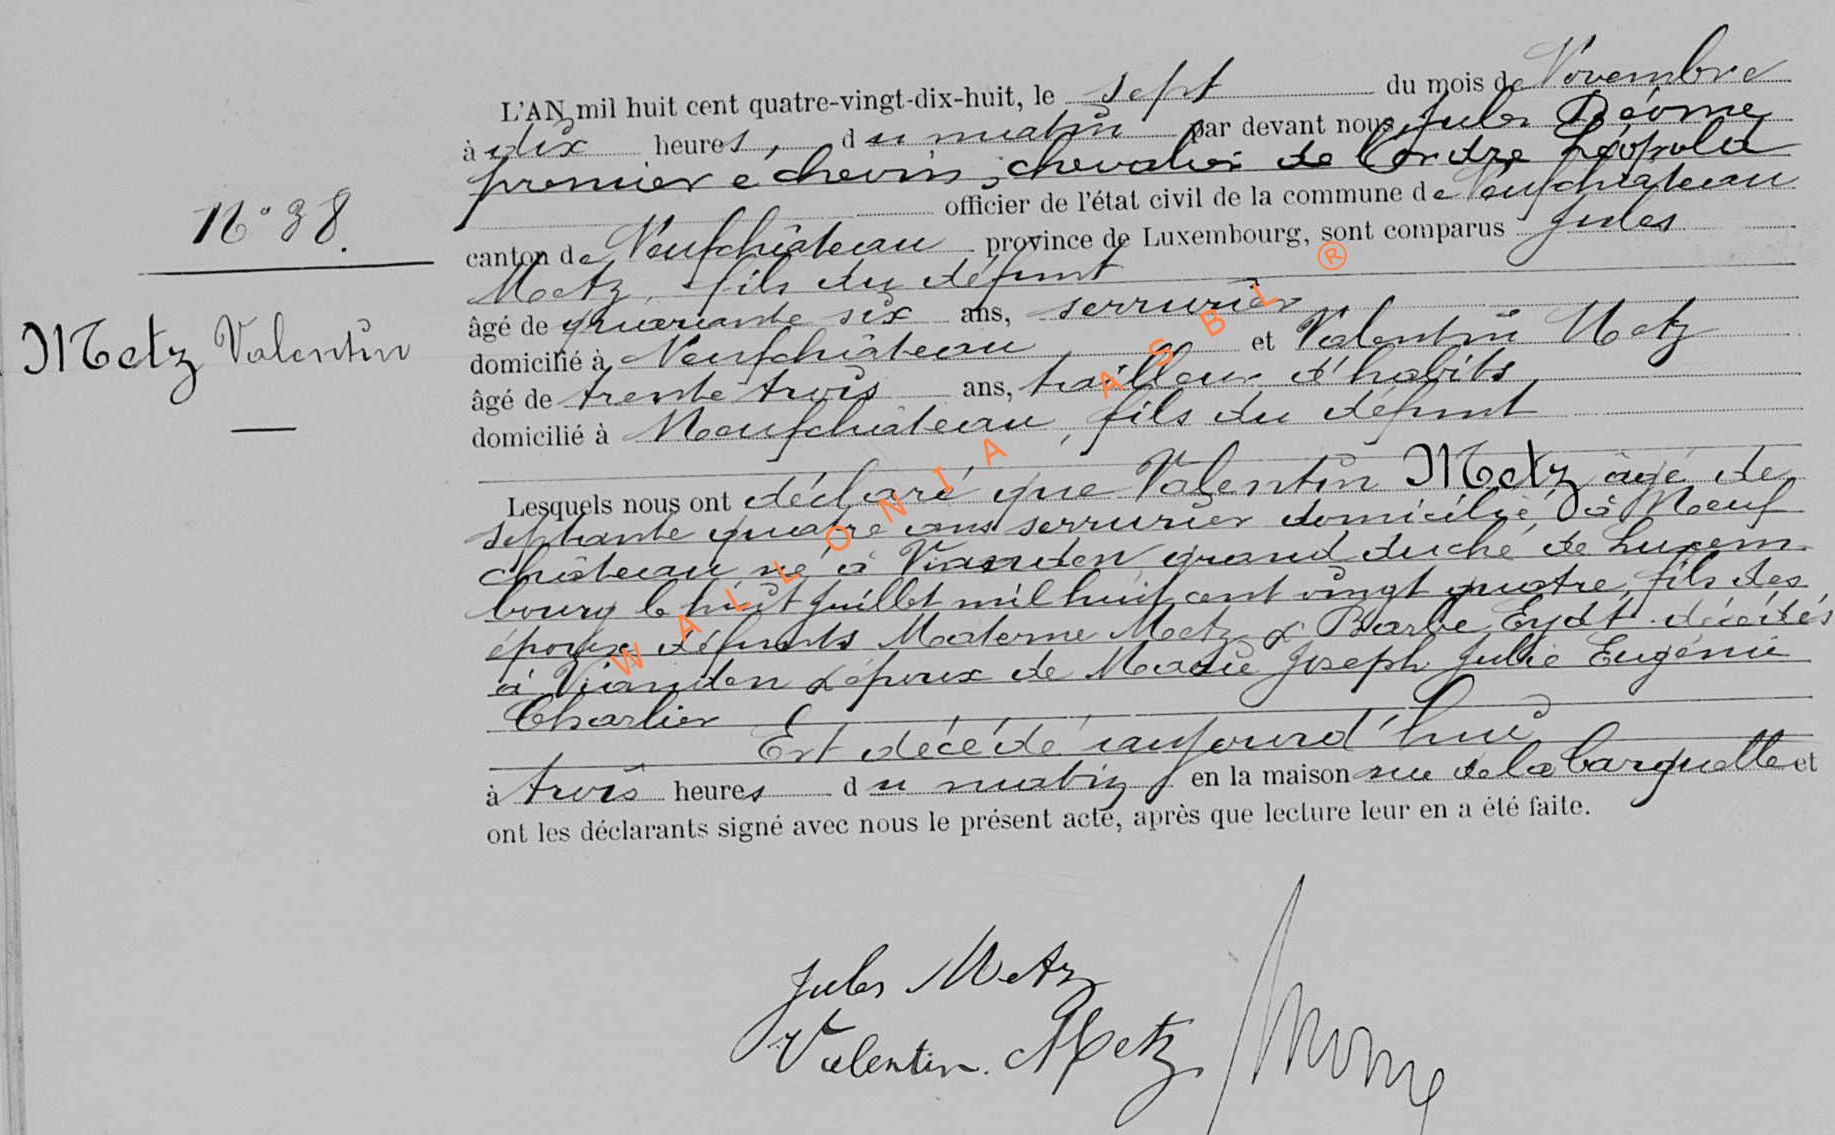 L'AN mil huit cent quatre-vingt-dix-huit, le sept du mois de Novembre
à dix heures, du matin par devant nous, Jules
premier échevin, chevalier de l'ordre Léopold
officier de l'état civil de la commune de Neufchâteau
canton de Neufchâteau province de Luxembourg, sont comparus Jules
Metz, fils du défunt
âgé de quarante six ans, serrurier
domicilié à Neufchâteau et Valentin Metz
âgé de trente trois ans, tailleur d'habits
domicilié à Neufchâteau, fils du défunt
Lesquels nous ont déclaré que Valentin Metz âgé de
septante quatre ans serrurier domicilié à Neuf
château né à Vianden grand duché de Luxem
bourg le huit Juillet mil huit cent vingt quatre, fils des
époux défunts Materne Metz & Barbe Eydt décédés
à Vianden & époux de Marie Joseph Julie Eugénie
Charlier
Est décédé aujourd'hui
à trois heures du matin en la maison rue de la Barquette et
ont les déclarants signé avec nous le présent acte, après que lecture leur en a été faite.
N° 38.
Metz Valentin
Jules Metz
Valentin Metz
WALLONIA ASBL ®